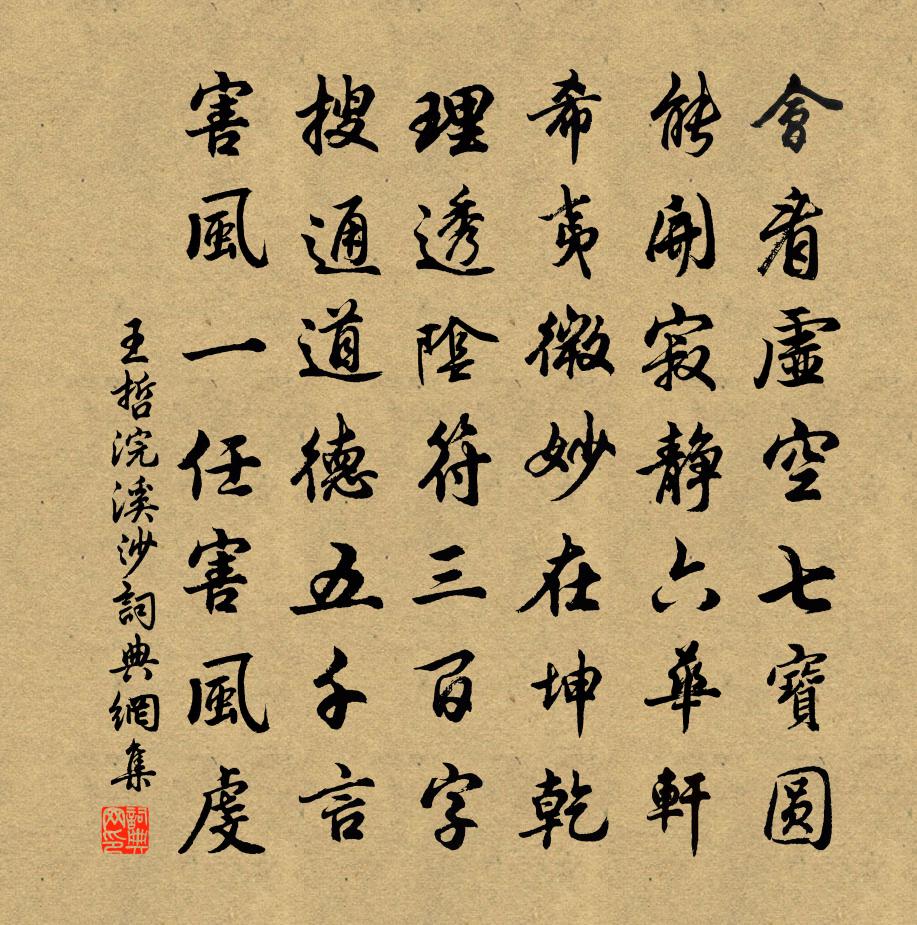 會看虛空七寶圓
能開寂靜六華軒
希夷微妙在坤乾
理透陰符三百字
搜通道德五千言
害風一任害風虔
王哲浣溪沙詞典網集
詞典网印